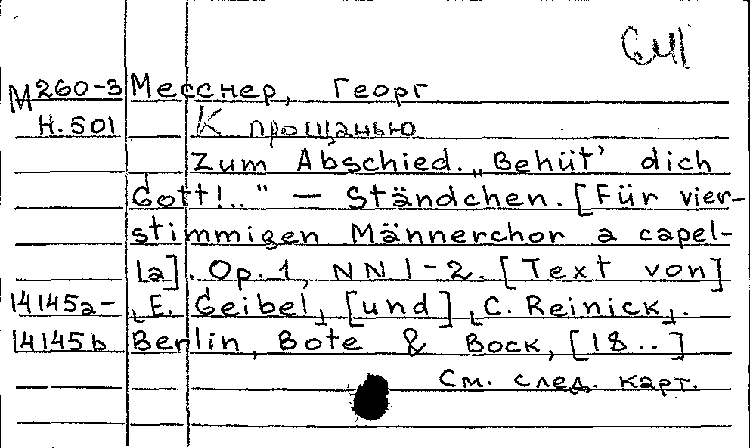 М260-3 Месснер, Георг
Н.501 К прощанью
Zum Abschied. „Behüt’ dich
Gott!.." — Ständchen. [Für vier-
stimmigen Männerchor a capel-
la]. Op. 1, NN 1-2. [Text von]
14145a- E. Geibel, [und] C. Reinick.
14145b Berlin, Bote & Bock, [18..]
См. след. карт.